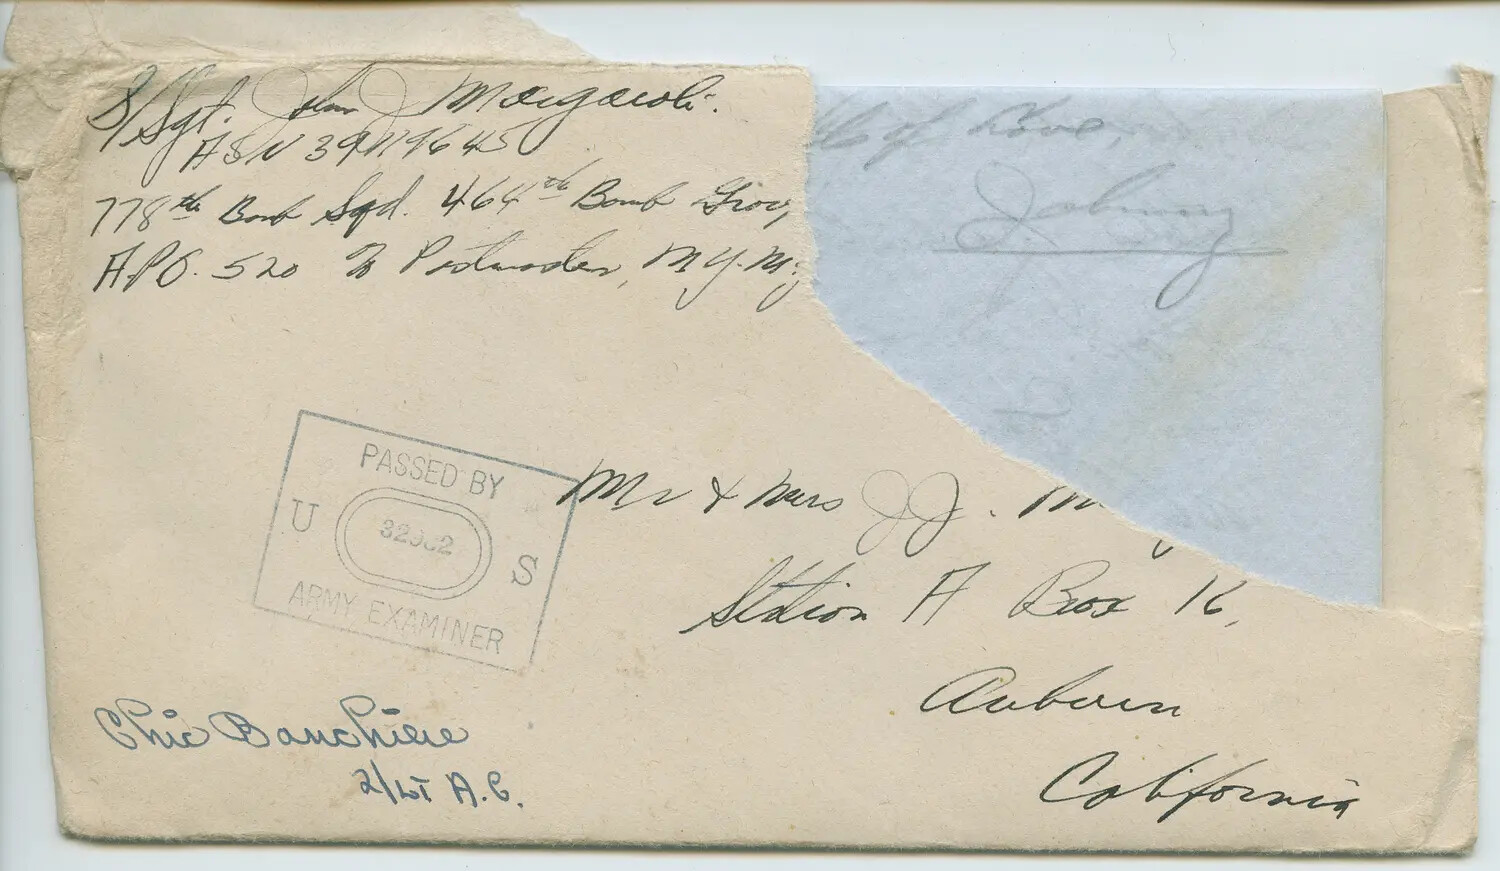 S/Sgt. John J Margaroli.
ASN 39119645
778th Bomb Sqd. 464th Bomb Grou
A.P.O. 520 % Postmaster, N.Y. N.Y
of Love,
Johnny
PASSED BY
U S
ARMY EXAMINER
Mr & Mrs J J. M
Station A Box 16,
Auburn
California
Chic Banchiere
2/LT A.C.